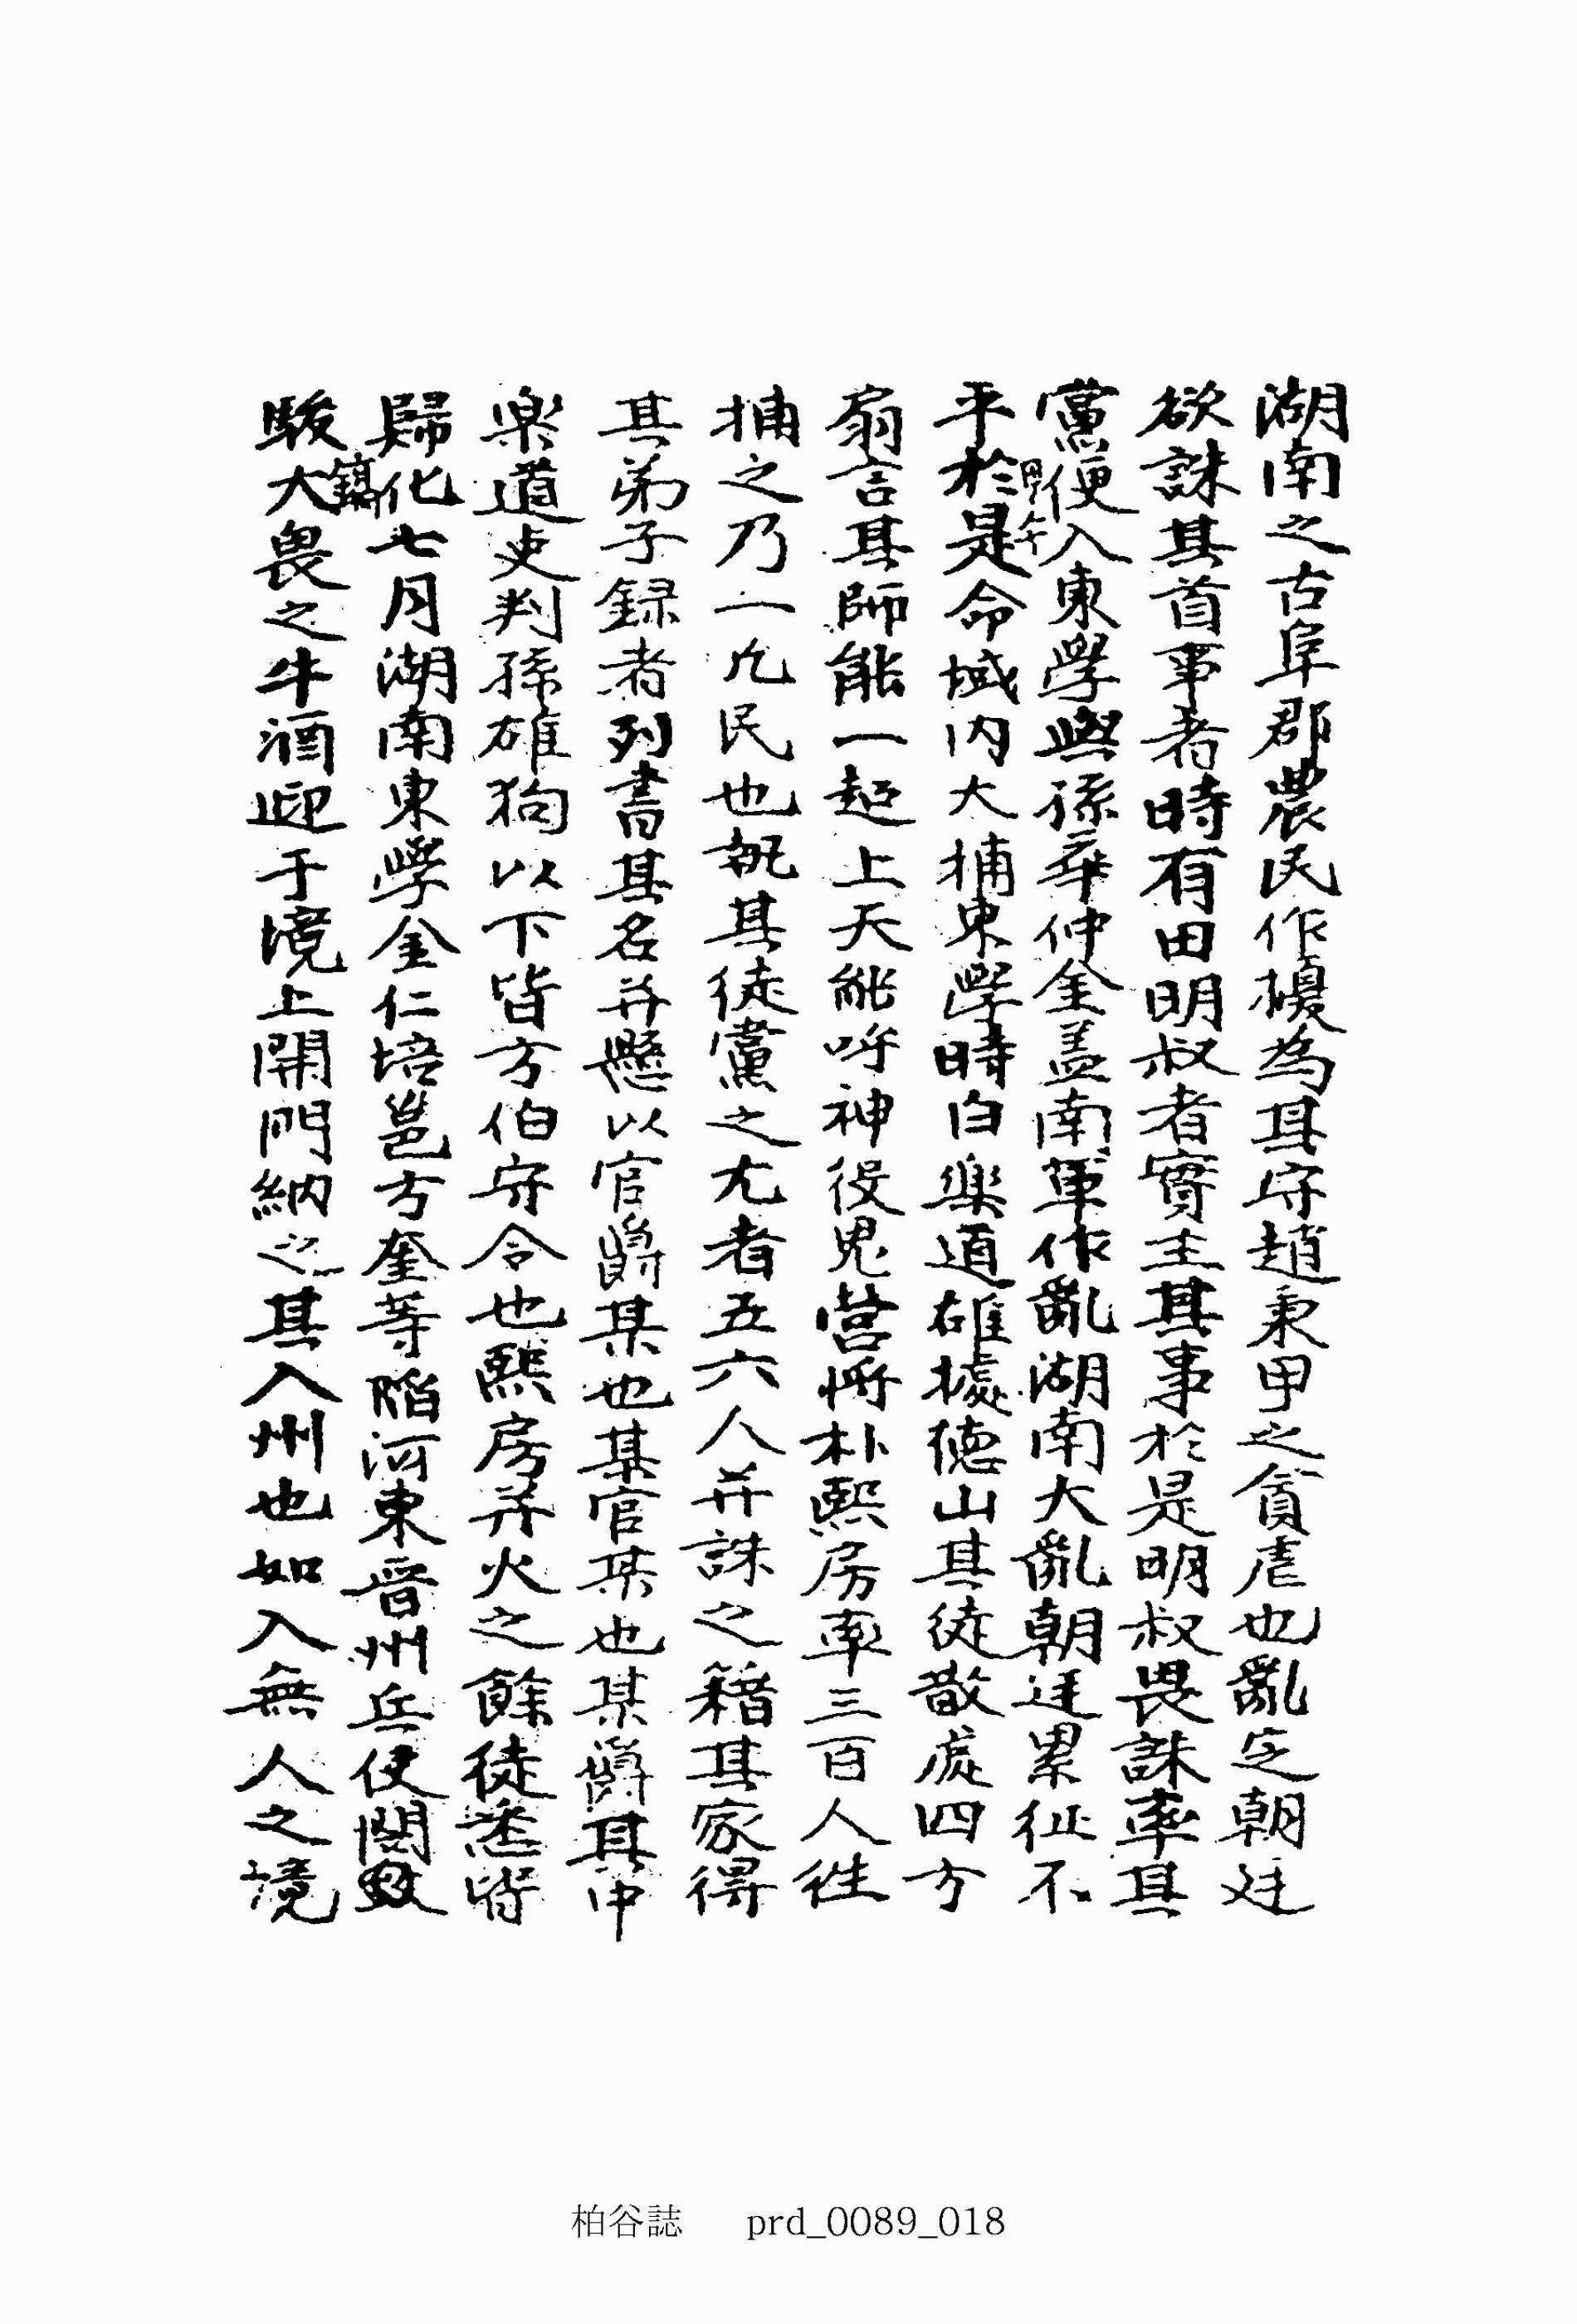 湖南之古阜郡農民作擾為其守趙秉甲之貪虐也亂定朝廷
欲誅其首事者時有田明叔者實主其事於是明叔畏誅率其
黨便入東學與孫華仲金盖南軍作亂湖南大亂朝廷累征不
甲午
平於是命域內大捕東學時白樂道雄據德山其徒散處四方
扇言其師能一起上天能呼神役鬼營將朴熙房率三百人往
捕之乃一凡民也執其徒黨之尤者五六人并誅之籍其家得
其弟子録者列書其名并懸以官爵某也某官某也某爵其中
樂道吏判孫雄狗以下皆方伯守令也熙房并火之餘徒悉皆
歸化七月湖南東學金仁培邕方奎等陷河東晋州兵使閔
鎬
駿大畏之牛酒迎于境上開門納之其入州也如入無人之境